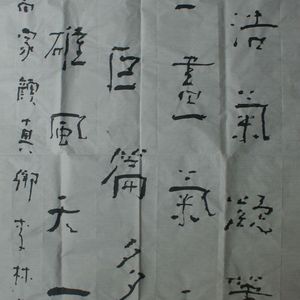 浩氣
一畫一氣
巨篇多
雄風天一
家顏真卿李林